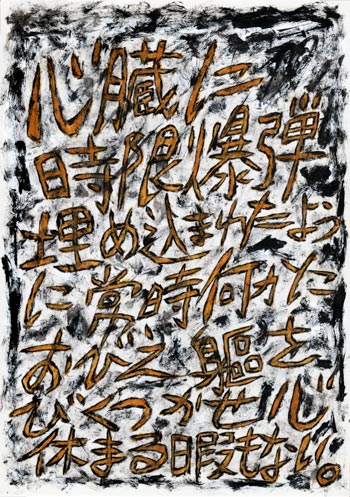 心臓に
時限爆弾
埋め込まれたよう
に常時何かに
おびえ躯を
びくつかせ心
休まる暇もない。